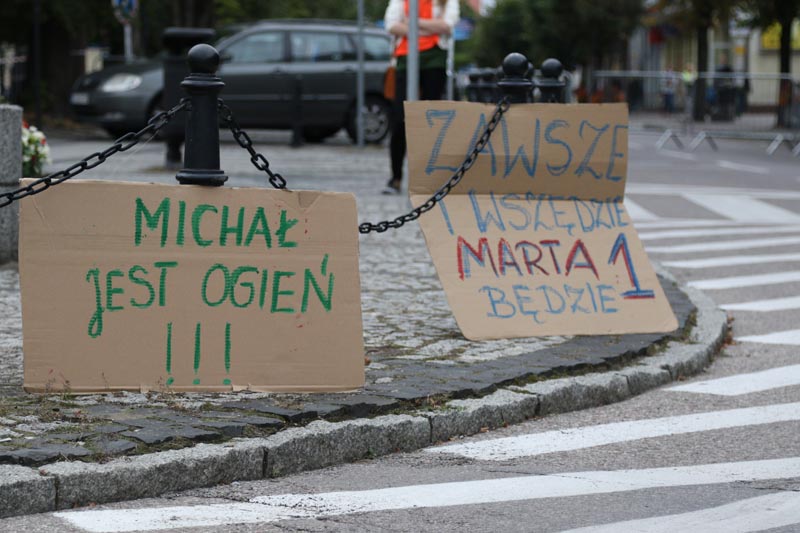 MICHAŁ
JEST OGIEŃ
!!!
ZAWSZE
I WSZĘDZIE
MARTA 1
BĘDZIE